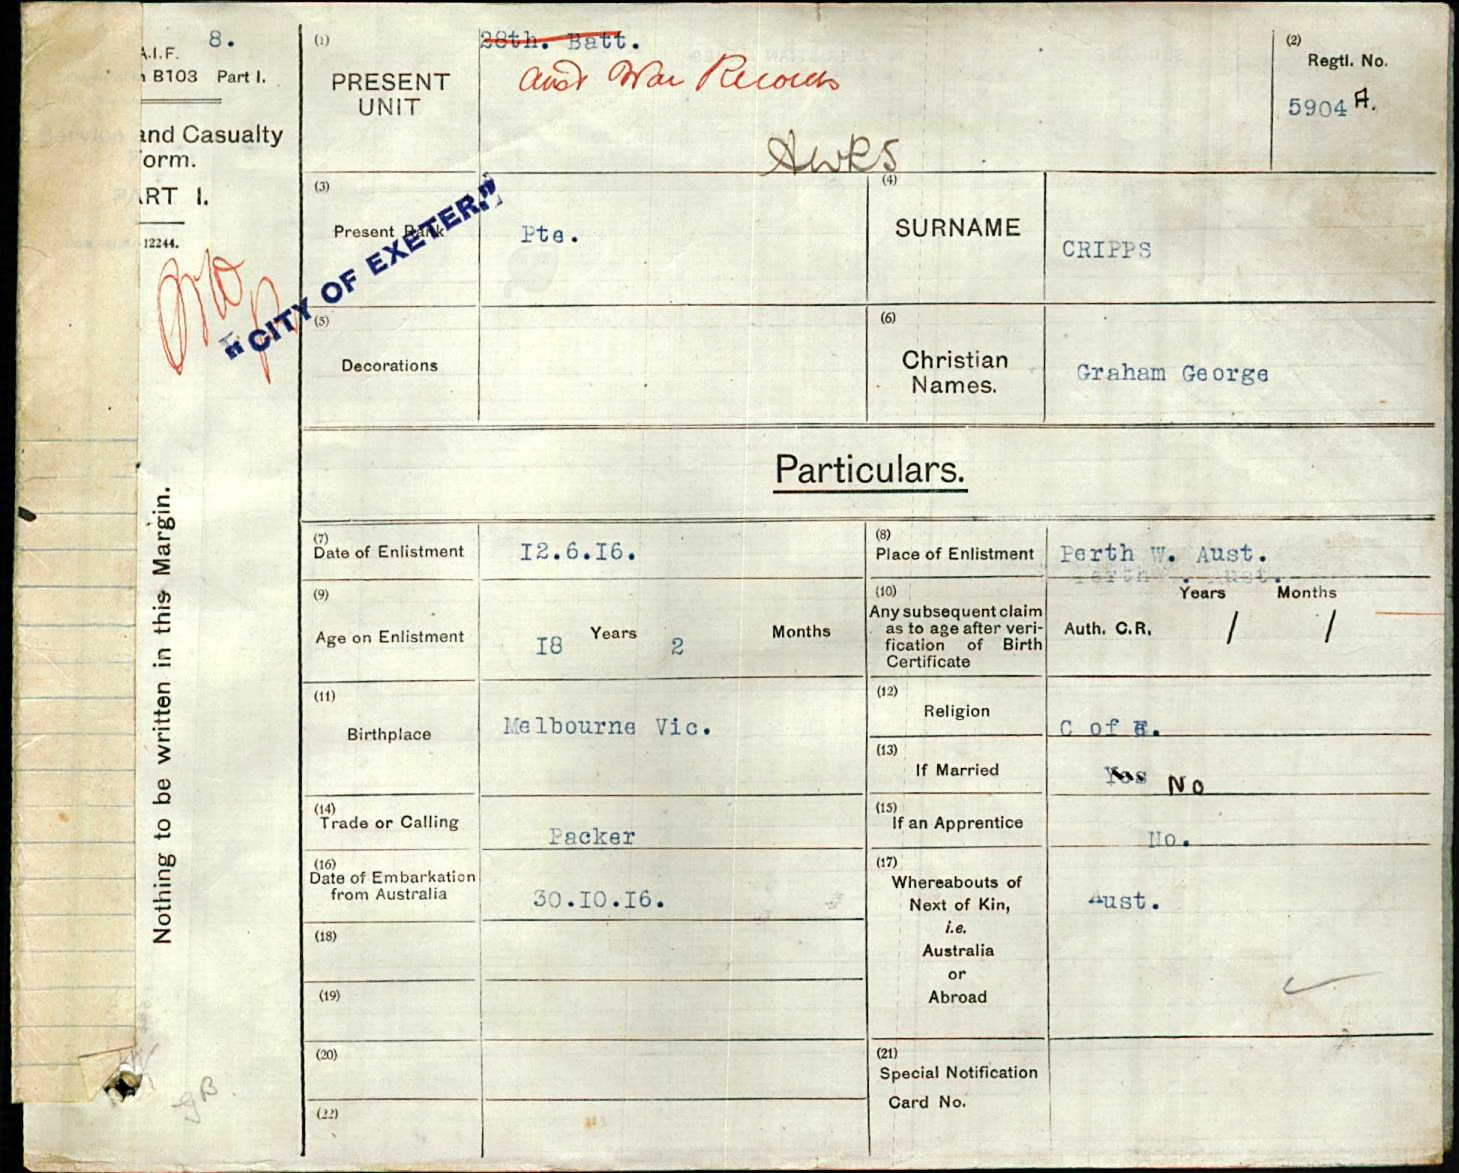 8.
A.I.F.
B103 Part I.
and Casualty
orm.
ART I.
12244.
Nothing to be written in this Margin.
(1)
PRESENT
UNIT
28th. Batt.
Aust War Records
AWRS
(2)
Regtl. No.
5904 A.
(3)
Present Rank
Pte.
"CITY OF EXETER."
(4)
SURNAME
CRIPPS
(5)
Decorations
(6)
Christian
Names.
Graham George
Particulars.
(7)
Date of Enlistment
12.6.16.
(8)
Place of Enlistment
Perth W. Aust.
(9)
Age on Enlistment
18 Years 2 Months
(10)
Any subsequent claim
as to age after veri-
fication of Birth
Certificate
Years Months
Auth. C.R. / /
(11)
Birthplace
Melbourne Vic.
(12)
Religion
C of E.
(13)
If Married
Yes No
(14)
Trade or Calling
Packer
(15)
If an Apprentice
No.
(16)
Date of Embarkation
from Australia
30.10.16.
(17)
Whereabouts of
Next of Kin,
i.e.
Australia
or
Abroad
Aust.
(18)
(19)
(20)
(21)
Special Notification
Card No.
(22)